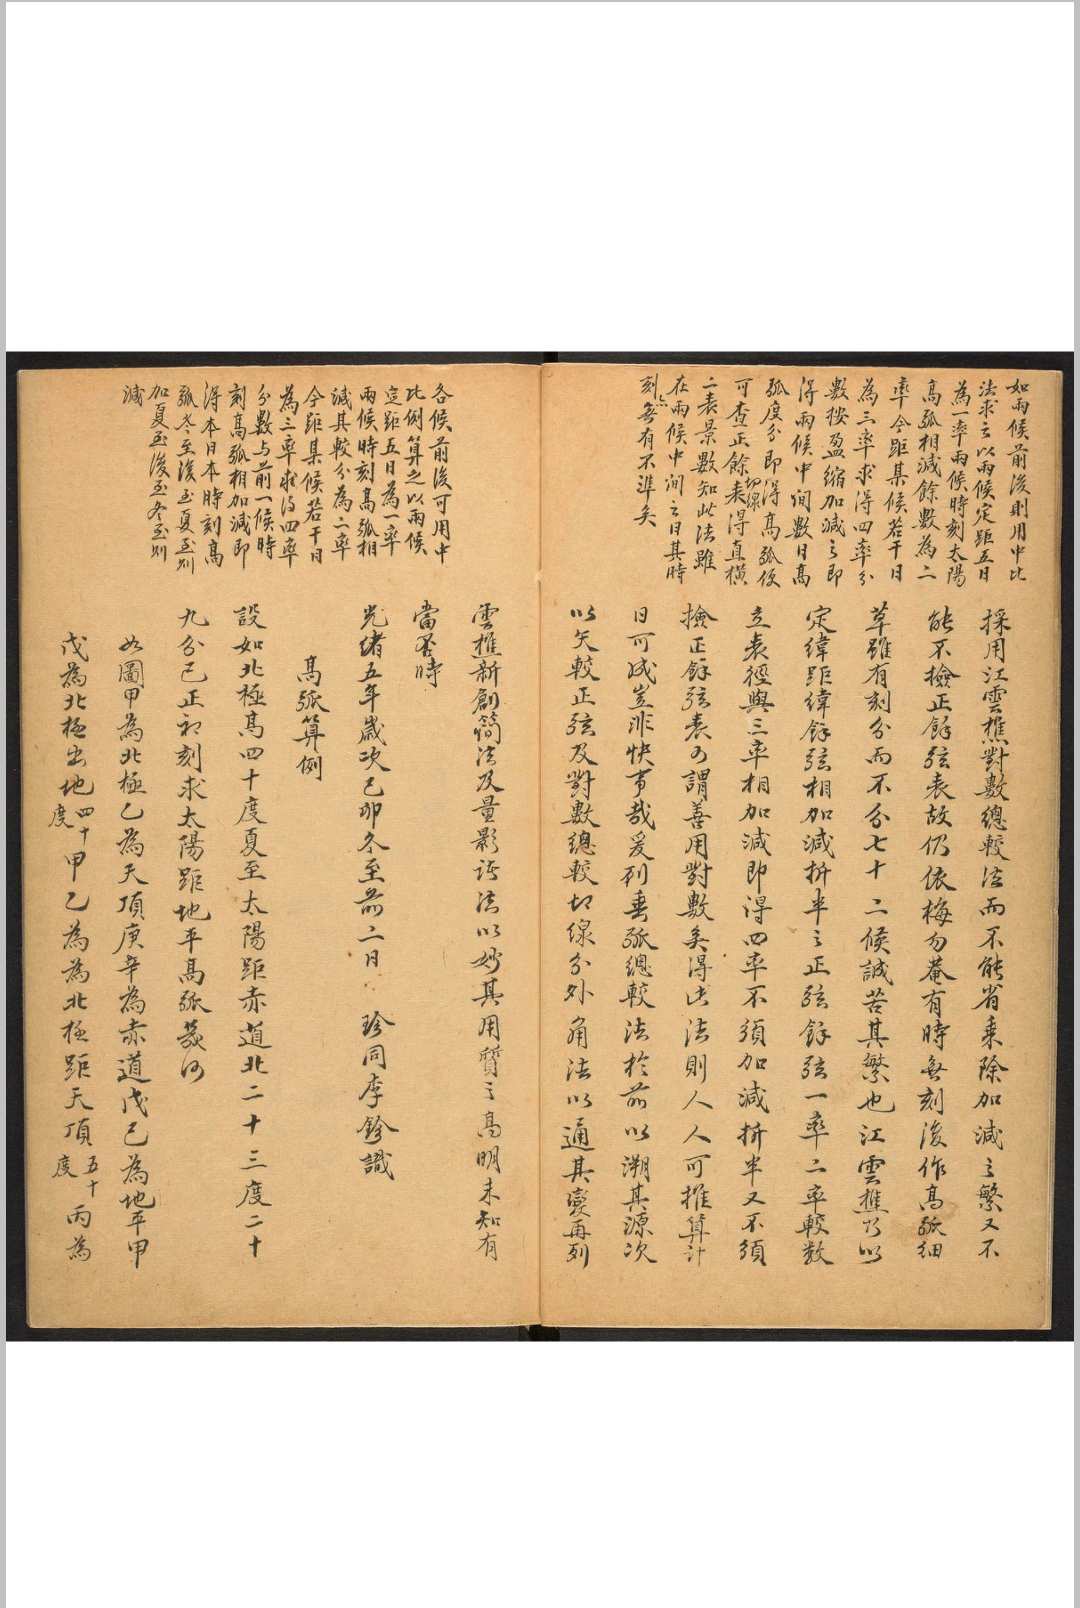 如兩候前後則用中比
法求之以兩候定距五日
為一率兩候時刻太陽
高弧相減餘數為二
率今距某候若干日
為三率求得四率分
數按盈縮加減之即
得兩候中間數日高
弧度分即得高弧便
可查正餘切線表得直橫
二表景數知此法雖
在兩候中間之日其時
刻亦無有不準矣
採用江雲樵對數總較法而不能省乗除加減之繁又不
能不撿正餘弦表故仍依梅勿菴有時無刻後作高弧細
草雖有刻分而不分七十二候誠苦其繁也江雲樵乃以
定緯距緯餘弦相加減折半之正弦餘弦一率二率較数
立表徑與三率相加減即得四率不須加減折半又不須
撿正餘弦表可謂善用對數矣得此法則人人可推算計
日可成豈非快事哉爰列垂弧總較法於前以溯其源次
以矢較正弦及對數總較切線分外角法以通其變再列
各候前後可用中
比例算之以兩候
定距五日為一率
兩候時刻高弧相
減其較分為二率
今距某候若干日
為三率求得四率
分數与前一候時
刻高弧相加減即
得本日本時刻高
弧冬至後至夏至則
加夏至後至冬至則
減
雲樵新創簡法及量影諸法以妙其用質之高明未知有
當否時
光緒五年歲次己卯冬至前二日 珍同李鉁識
高弧算例
設如北極高四十度夏至太陽距赤道北二十三度二十
九分巳正初刻求太陽距地平高弧幾何
如圖甲為北極乙為天頂庚辛為赤道戊己為地平甲
戊為北極出地四十度甲乙為為北極距天頂五十度丙為